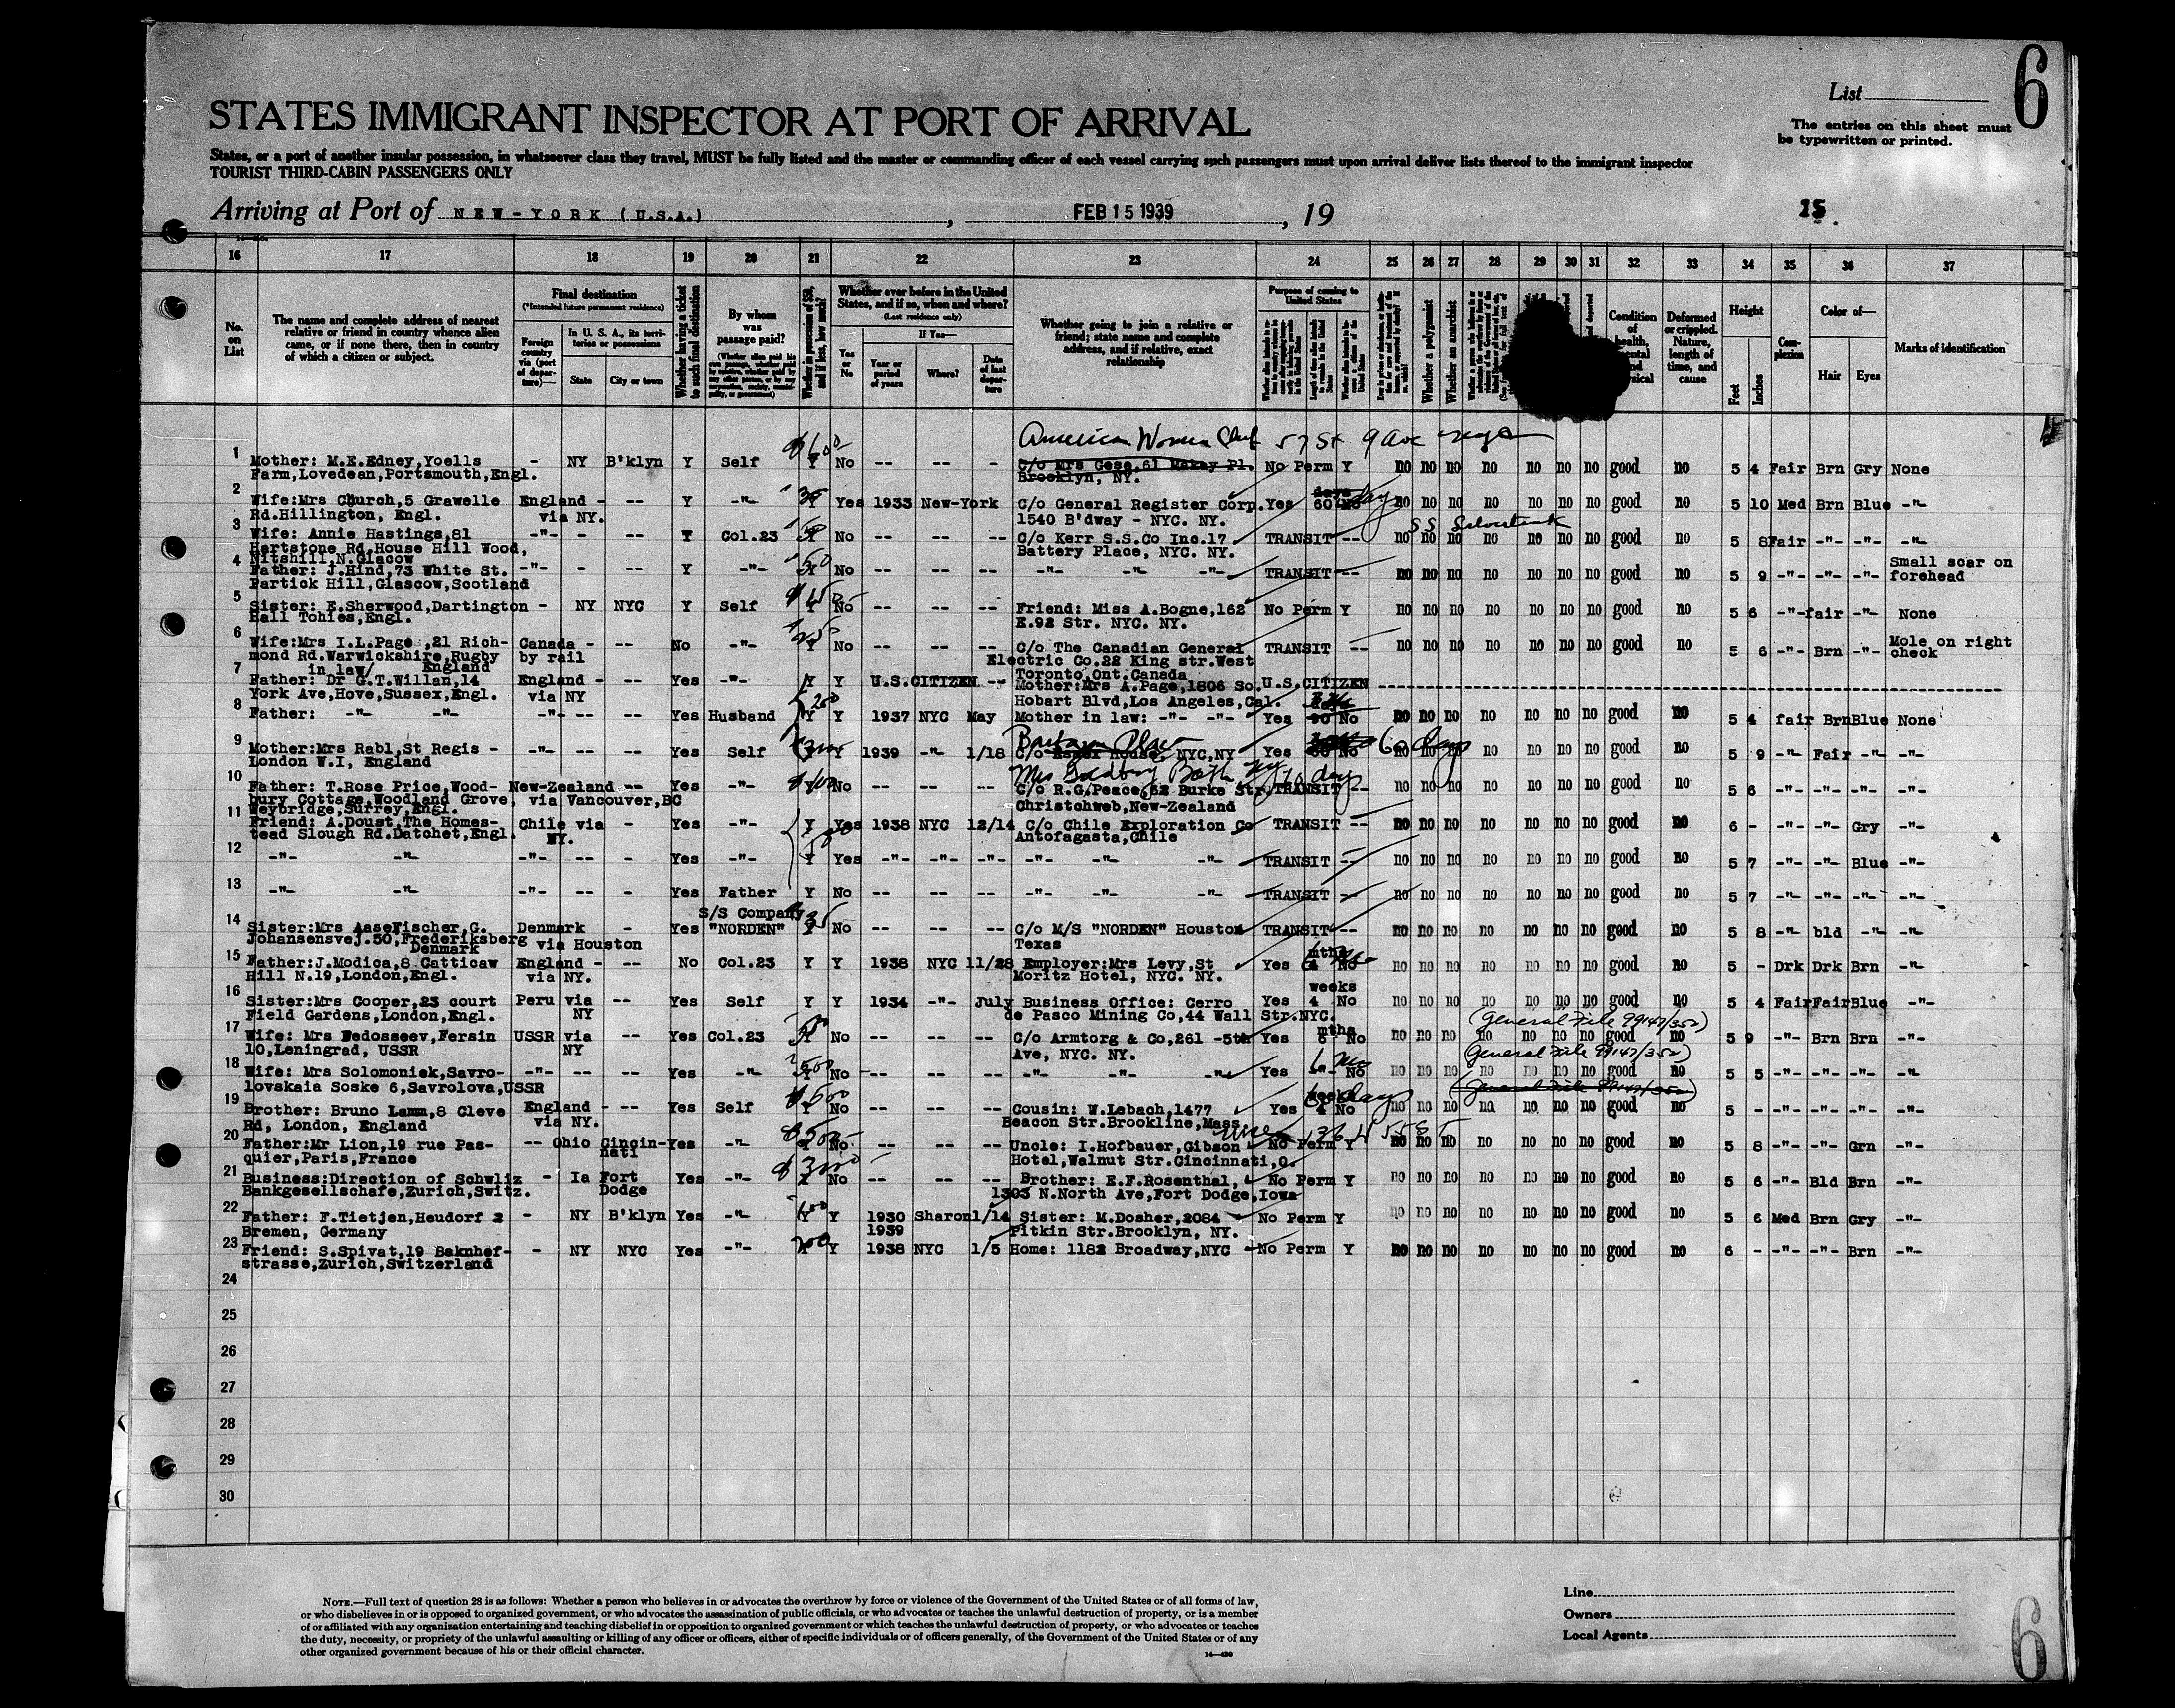 6
List
The entries on this sheet must
be typewritten or printed.
STATES IMMIGRANT INSPECTOR AT PORT OF ARRIVAL
States, or a port of another insular possession, in whatsoever class they travel, MUST be fully listed and the master or commanding officer of each vessel carrying such passengers must upon arrival deliver lists thereof to the immigrant inspector
TOURIST THIRD-CABIN PASSENGERS ONLY
Arriving at Port of NEW-YORK (U.S.A.), FEB 15 1939, 19 15.
16 17 18 19 20 21 22 23 24 25 26 27 28 29 30 31 32 33 34 35 36 37
No. on List
The name and complete address of nearest relative or friend in country whence alien came, or if none there, then in country of which a citizen or subject.
Final destination
(*Intended future permanent residence)
Foreign country via (port of departure)—
In U. S. A., its territories or possessions
State City or town
Whether having a ticket to such final destination
By whom was passage paid?
Whether in possession of $50, and if less, how much?
Whether ever before in the United States, and if so, when and where?
(Last residence only)
If Yes—
Yes or No
Year or period of years
Where?
Date of last departure
Whether going to join a relative or friend; state name and complete address, and if relative, exact relationship
Purpose of coming to United States
Whether a polygamist
Whether an anarchist
Condition of health, mental and physical
Deformed or crippled. Nature, length of time, and cause
Height
Feet Inches
Complexion
Color of—
Hair Eyes
Marks of identification
American Women Club 57 St 9 Ave
1 Mother: M.E.Edney,Yoells - NY B'klyn Y Self Y No -- -- - C/o Mrs Gese,61 Mckay Pl. No Perm Y no no no no no no no good no 5 4 Fair Brn Gry None
Farm,Lovedean,Portsmouth,Engl. Brooklyn, NY.
2 Wife:Mrs Church,5 Grawelle England - -- Y -"- 35 Yes 1933 New-York C/o General Register Corp. Yes 60 days no no no no no no no good no 5 10 Med Brn Blue -"-
Rd.Hillington, Engl. via NY. 1540 B'dway - NYC. NY.
3 Wife: Annie Hastings,81 -"- - -- Y Col.23 Y No -- -- -- C/o Kerr S.S.Co Inc.17 TRANSIT -- no no no no no no no good no 5 8 Fair -"- -"- -"-
Hartstone Rd.House Hill Wood, Battery Place, NYC. NY.
Nitshill,N.Glacow
4 Father: J.Hind,73 White St. -"- - -- Y -"- 50 Y No -- -- -- -"- -"- -"- TRANSIT -- no no no no no no no good no 5 9 -"- -"- -"- Small scar on
Partick Hill,Glascow,Scotland forehead
5 Sister: E.Sherwood,Dartington - NY NYC Y Self Y No -- -- -- Friend: Miss A.Bogne,162 No Perm Y no no no no no no no good no 5 6 -"- fair -"- None
Hall Tohies,Engl. E.92 Str. NYC. NY.
6 Wife:Mrs I.L.Page ,21 Rich- Canada - -- No -"- Y No -- -- -- C/o The Canadian General TRANSIT -- no no no no no no no good no 5 6 -"- Brn -"- Mole on right
mond Rd.Warwickshire,Rugby by rail Electric Co.22 King str.West check
England Toronto,Ont.Canada
7 in law/
Father: Dr G.T.Willan,14 England - -- Yes -"- Y Y U.S.CITIZEN -- Mother:Mrs A.Page,1806 So. U.S.CITIZEN
York Ave,Hove,Sussex,Engl. via NY Hobart Blvd,Los Angeles,Cal.
8 Father: -"- -"- -"- -- -- Yes Husband 200 Y Y 1937 NYC May Mother in law: -"- -"- Yes 90 No no no no no no no no good no 5 4 fair Brn Blue None
9 Mother:Mrs Rabl,St Regis - -"- -- -- Yes Self Y 1939 -"- 1/18 C/o Essex House, NYC,NY Yes 60 No 60 days no no no no no no no good no 5 9 -"- Fair -"- -"-
London W.I, England
10 Father: T.Rose Price,Wood- New-Zealand -- Yes -"- No -- -- -- C/o R.G.Peace,62 Burke Str. TRANSIT -- no no no no no no no good no 5 6 -"- -"- -"- -"-
bury Cottage,Woodland Grove, via Vancouver,BC Christchweb,New-Zealand
Weybridge,Surrey,Engl.
11 Friend: A.Doust,The Homes- Chile via - Yes -"- Y Yes 1938 NYC 12/14 C/o Chile Exploration Co TRANSIT -- no no no no no no no good no 6 - -"- -"- Gry -"-
tead Slough Rd.Datchet,Engl. NY. Antofagasta,Chile
12 -"- -"- -"- -- - Yes -"- Y Yes -"- -"- -"- -"- -"- -"- TRANSIT -- no no no no no no no good no 5 7 -"- -"- Blue -"-
13 -"- -"- -"- -- - Yes Father Y No -- -- -- -"- -"- -"- TRANSIT -- no no no no no no no good no 5 7 -"- -"- -"- -"-
S/S Company
14 Sister:Mrs AaseFischer,G. Denmark - Yes "NORDEN" 35 Y No -- -- -- C/o M/S "NORDEN" Houston TRANSIT -- no no no no no no no good no 5 8 -"- bld -"- -"-
Johansensvej.50,Frederiksberg via Houston Texas
Denmark
15 Father:J.Modica,8 Catticaw England - -- No Col.23 Y Y 1938 NYC 11/28 Employer:Mrs Levy,St Yes mths No no no no no no no no good no 5 - Drk Drk Brn -"-
Hill N.19,London,Engl. via NY. Moritz Hotel, NYC. NY.
16 Sister:Mrs Cooper,23 court Peru via -- Yes Self Y Y 1934 -"- July Business Office: Cerro Yes 4 weeks No no no no no no no no good no 5 4 Fair Fair Blue -"-
Field Gardens,London,Engl. NY de Pasco Mining Co,44 Wall Str.NYC.
(General File 99147/352)
17 Wife: Mrs Nedosseev,Fersin USSR via -- Yes Col.23 Y No -- -- -- C/o Armtorg & Co,261 -5th Yes 6 mths No no no no no no no no good no 5 9 -"- Brn Brn -"-
10,Leningrad, USSR NY Ave, NYC. NY.
(General File 99147/352)
18 Wife: Mrs Solomoniek,Savro- -"- -- -- Yes -"- Y No -- -- -- -"- -"- -"- Yes -"- No no no no no no no no good no 5 5 -"- -"- -"- -"-
lovskaia Soske 6,Savrolova,USSR
(General File 99147/352)
19 Brother: Bruno Lamm,8 Cleve England - -- Yes Self Y No -- -- -- Cousin: W.Lebach,1477 Yes 4 weeks No 60 days no no no no no no no good no 5 - -"- -"- -"- -"-
Rd, London, England via NY. Beacon Str.Brookline,Mass.
20 Father:Mr Lion,19 rue Pas- -- Ohio Cincin- Yes -"- No -- -- -- Uncle: I.Hofbauer,Gibson No Perm Y no no no no no no no good no 5 8 -"- -"- Grn -"-
quier,Paris,France nati Hotel,Walnut Str.Cincinnati,O.
21 Business:Direction of Schwliz - Ia Fort Yes -"- No -- -- -- Brother: E.F.Rosenthal, No Perm Y no no no no no no no good no 5 6 -"- Bld Brn -"-
Bankgesellschafe,Zurich,Switz. Dodge 1303 N.North Ave,Fort Dodge,Iowa
22 Father: F.Tietjen,Heudorf 2 - NY B'klyn Yes -"- Y Y 1930 Sharon 1/14 Sister: M.Dosher,2084 No Perm Y no no no no no no no good no 5 6 Med Brn Gry -"-
Bremen, Germany 1939 Pitkin Str.Brooklyn, NY.
23 Friend: S.Spivat,19 Baknhof- - NY NYC Yes -"- 200 Y 1938 NYC 1/5 Home: 1182 Broadway,NYC No Perm Y no no no no no no no good no 6 - -"- -"- Brn -"-
strasse,Zurich,Switzerland
24
25
26
27
28
29
30
NOTE.—Full text of question 28 is as follows: Whether a person who believes in or advocates the overthrow by force or violence of the Government of the United States or of all forms of law,
or who disbelieves in or is opposed to organized government, or who advocates the assassination of public officials, or who advocates or teaches the unlawful destruction of property, or is a member
of or affiliated with any organization entertaining and teaching disbelief in or opposition to organized government or which teaches the unlawful destruction of property, or who advocates or teaches
the duty, necessity, or propriety of the unlawful assaulting or killing of any officer or officers, either of specific individuals or of officers generally, of the Government of the United States or of any
other organized government because of his or their official character.
Line
Owners
Local Agents
6